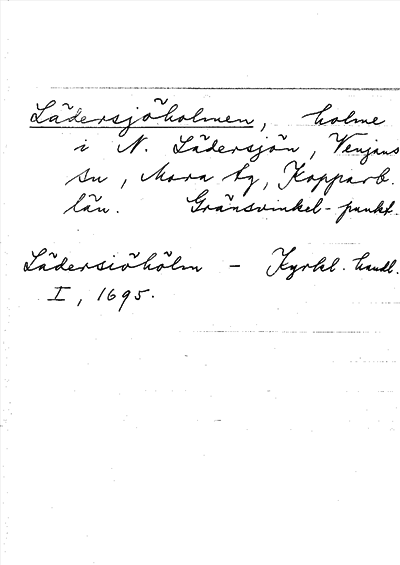 Lädersjöholmen, holme
i N. Lädersjön, Venjans
sn, Mora tg, Kopparb.
län. Gränsvinkel-punkt.
Lädersiöhölm - Kyrkl. handl.
I, 1695.